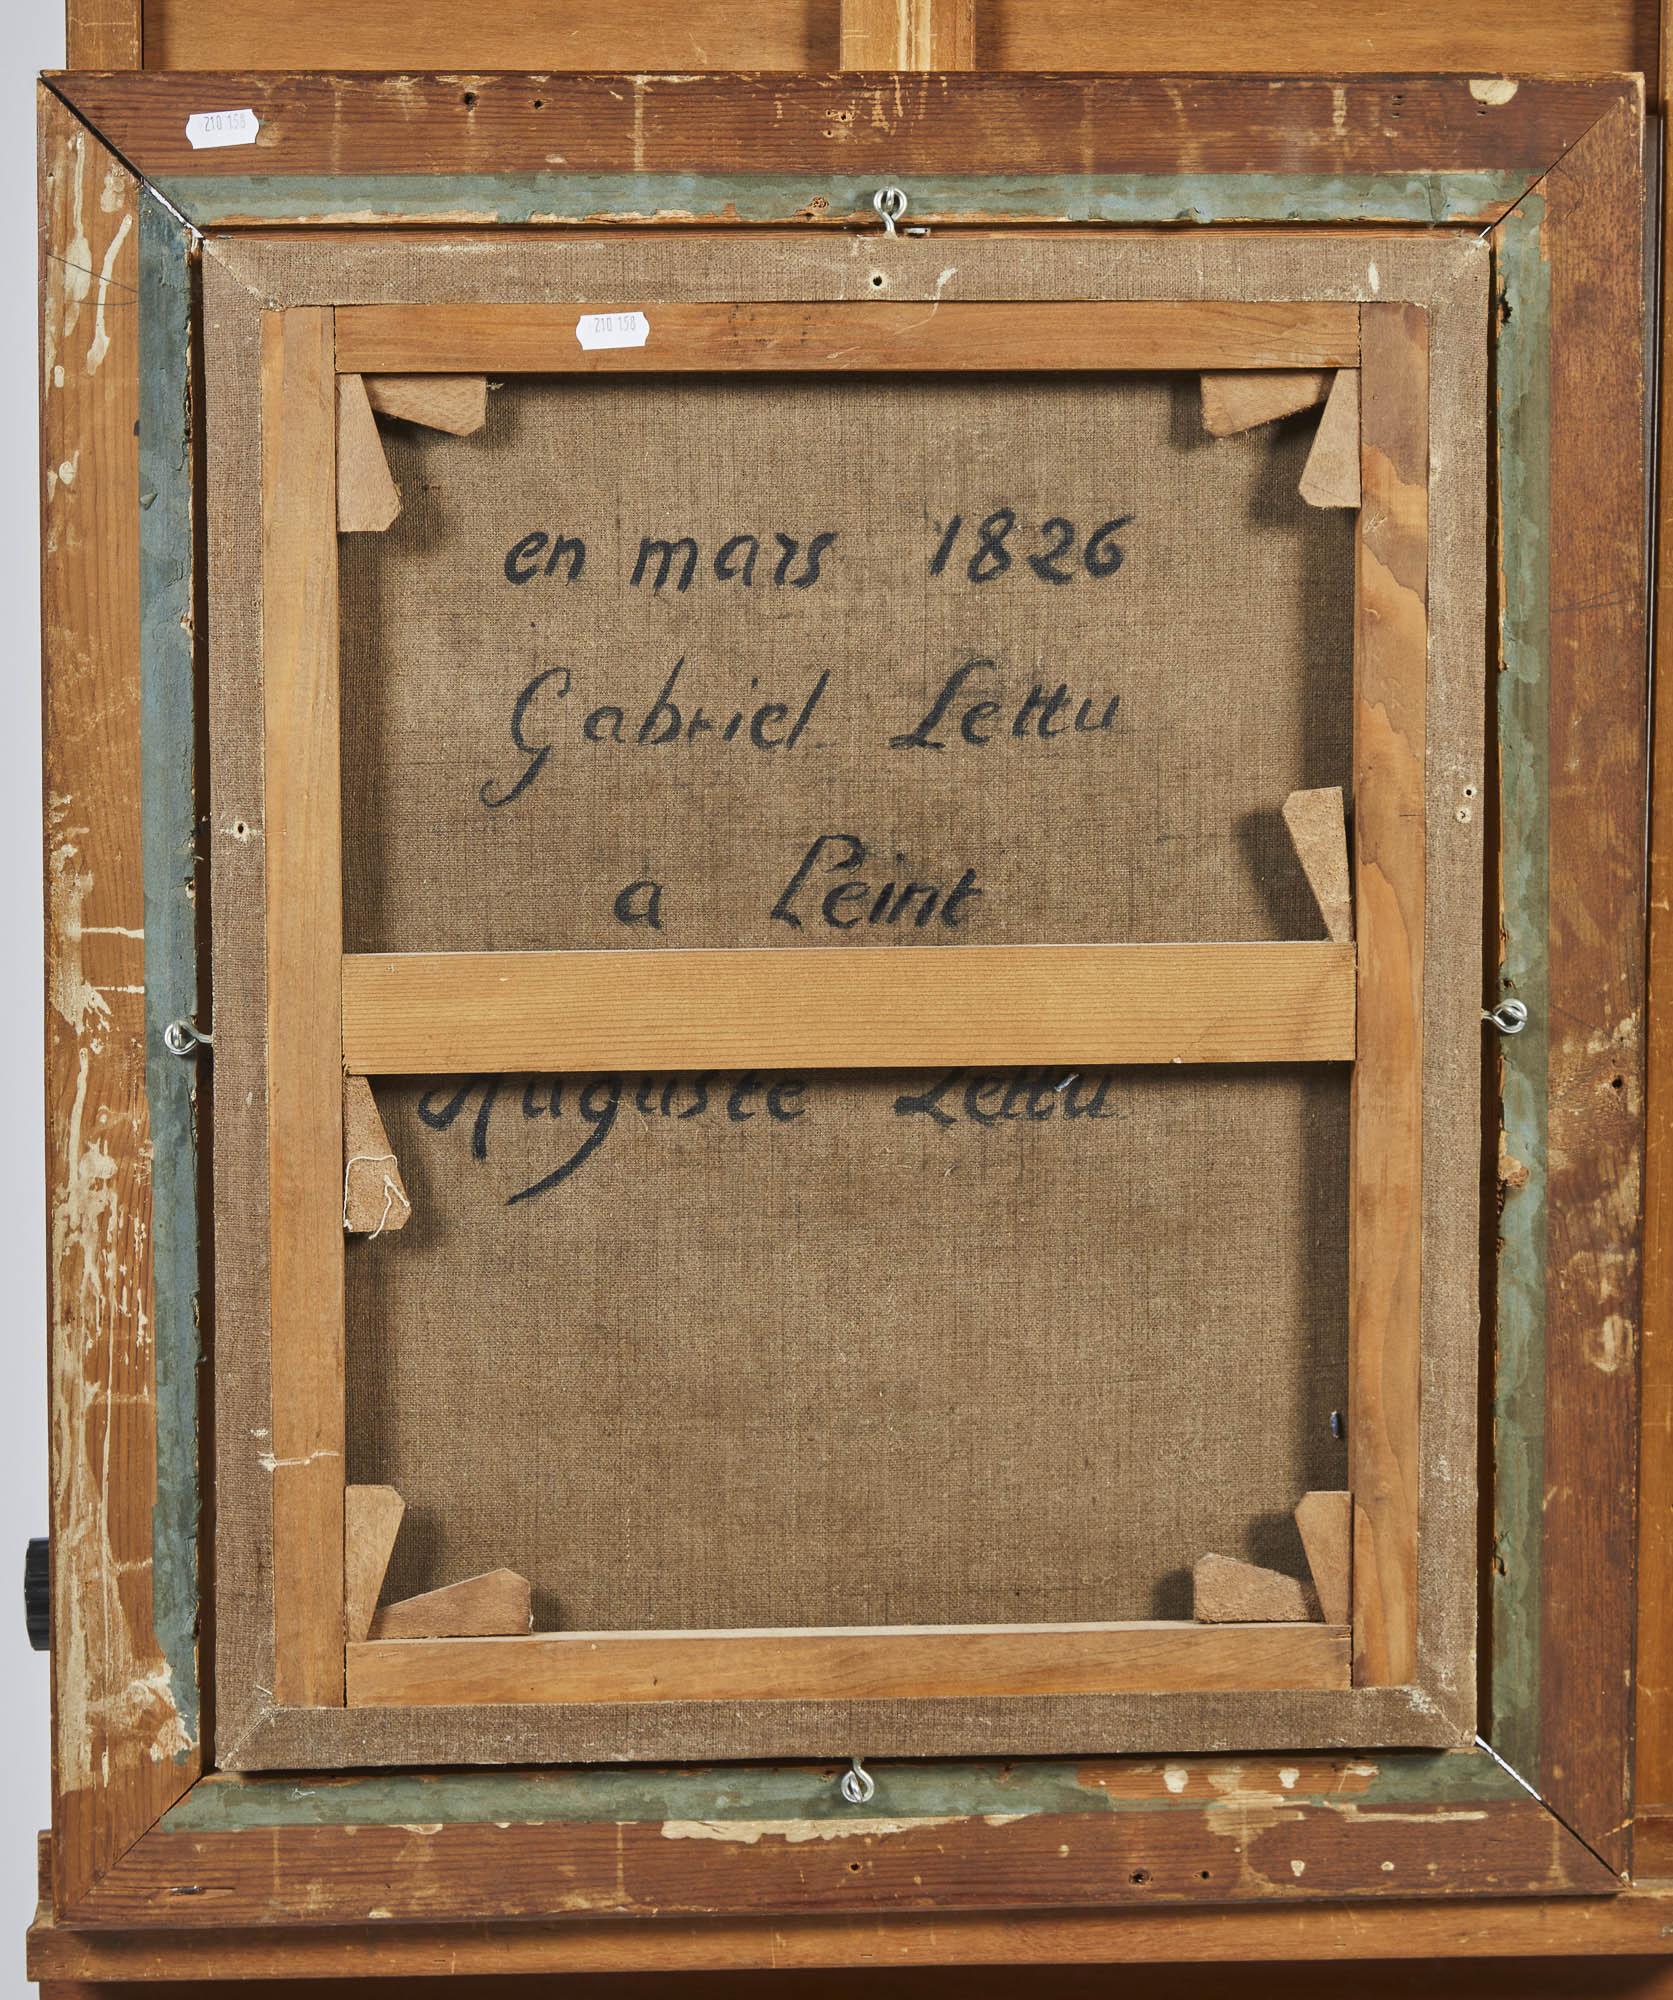 210 158
210 158
en mars 1826
Gabriel Lettu
a Peint
Auguste Lettu